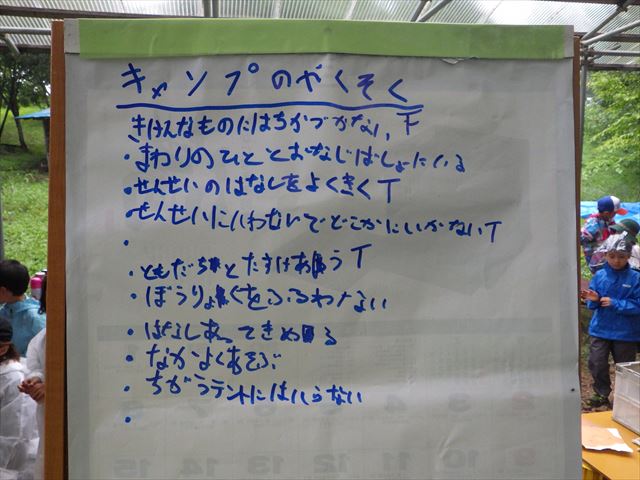 キャンプのやくそく
きけんなものにはちかづかない、T
・まわりのひととおなじばしょにいる
・せんせいのはなしをよくきくT
・せんせいにいわないでどこかにいかないT
・
・ともだちとたすけあうT
・ぼうりょくをふるわない
・はなしあってきめる
・なかよくあそぶ
・ちがうテントにはいらない
・
9 10 11
15 14 13 12